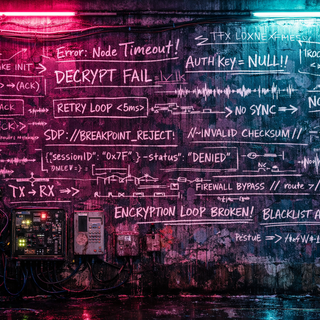 Error: Node Timeout!
AKE INIT →
DECRYPT FAIL
AUTH KEY = NULL!!
→(ACK)
ACK
RETRY LOOP <5ms>
→ NO SYNC ⟹
SDP: //BREAKPOINT_REJECT:
//~INVALID CHECKSUM //
{"sessionID": "0x7F" } -status": "DENIED"
TX → RX
FIREWALL BYPASS // route
ENCRYPTION LOOP BROKEN!
BLACKLIST A